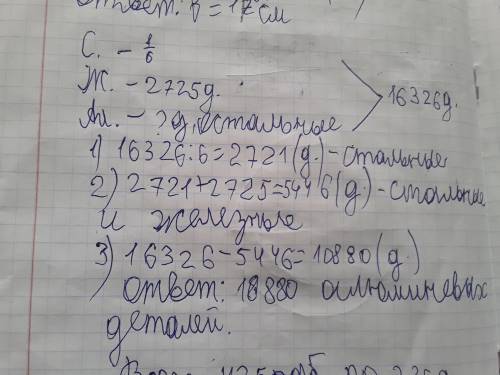 Ответ: В = 17 см
С. - 1/6
Ж. - 2725 д.
Ал. - ? д, остальные
16326 д.
1) 16326:6=2721 (д.) - стальные
2) 2721+2725=5446 (д.) - стальные
и железные
3) 16326-5446=10880 (д.)
Ответ: 18880 алюминевых
деталей.